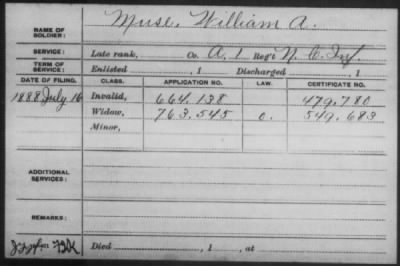 NAME OF SOLDIER: Muse, William A.
SERVICE: Late rank, Co. A, 1 Reg't N. C. Inf.
TERM OF SERVICE: Enlisted , 1 Discharged , 1
DATE OF FILING. CLASS. APPLICATION NO. LAW. CERTIFICATE NO.
1888 July 16 Invalid, 664.138 479.780
Widow, 763.545 o. 549.683
Minor,
ADDITIONAL SERVICES:
REMARKS:
Died , 1 , at